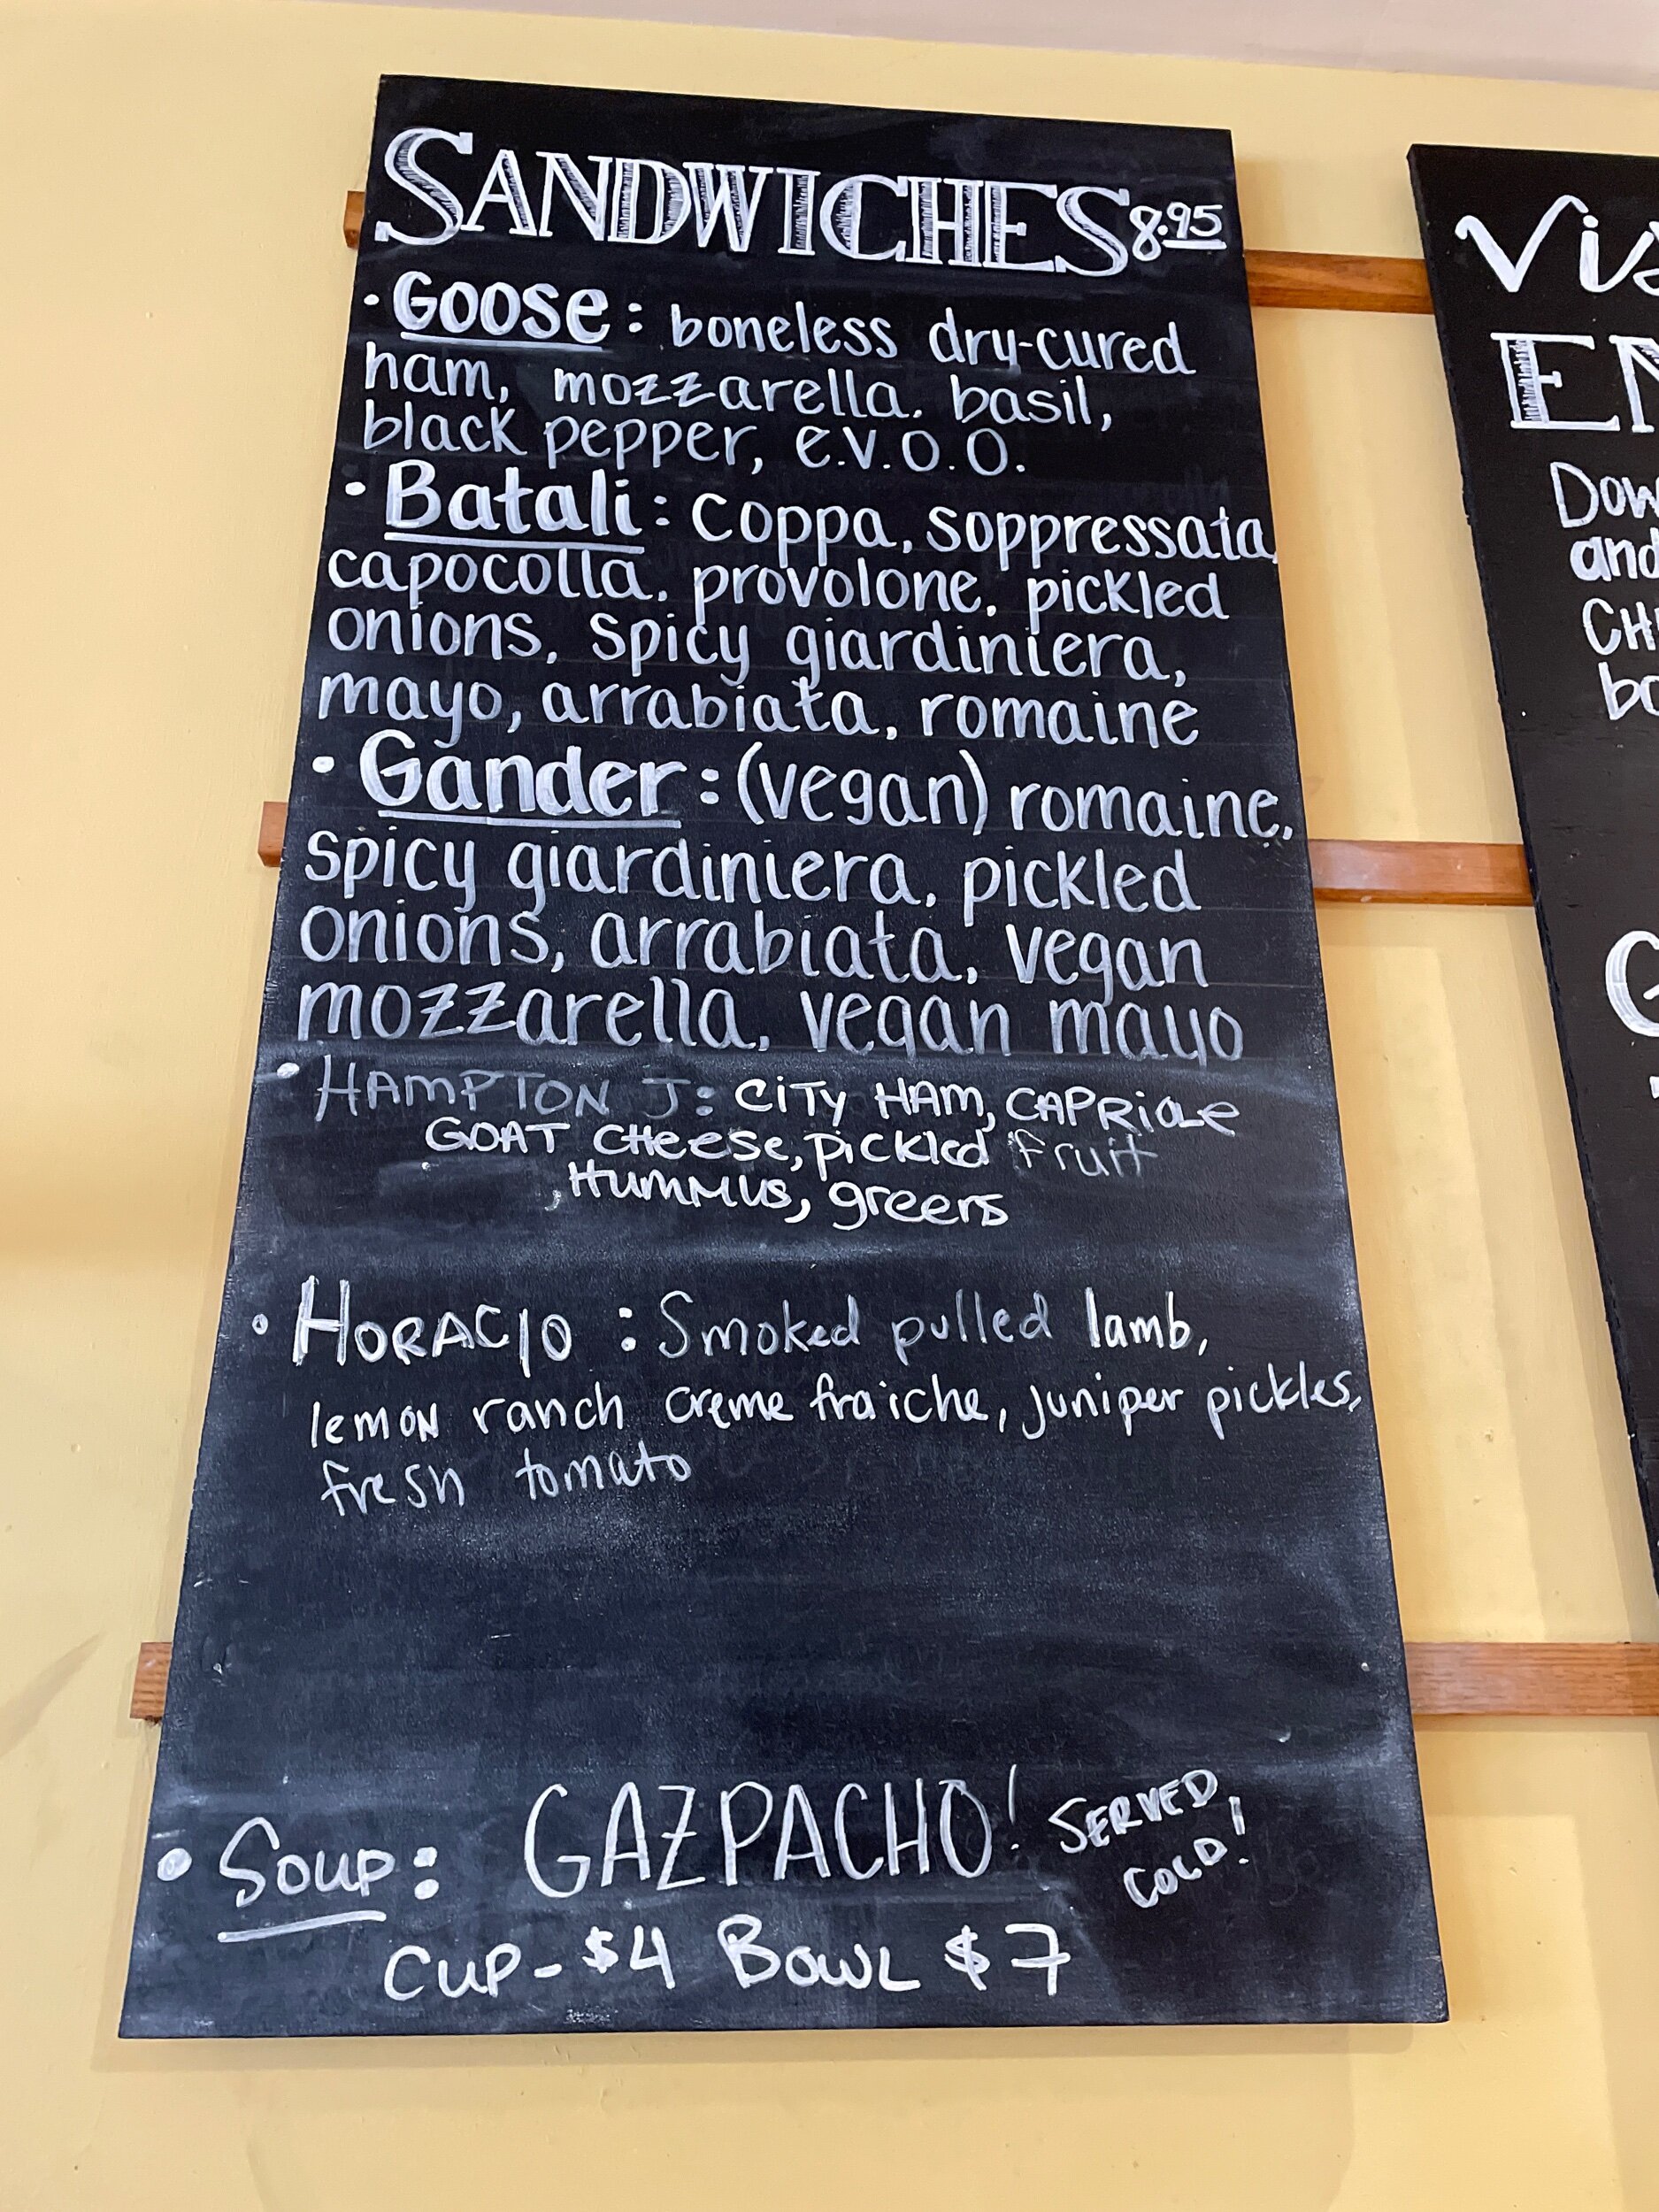 SANDWICHES 8.95
• GOOSE: boneless dry-cured
ham, mozzarella, basil,
black pepper, e.v.o.o.
• Batali: coppa, soppressata,
capocolla, provolone, pickled
onions, spicy giardiniera,
mayo, arrabiata, romaine
• Gander: (vegan) romaine,
spicy giardiniera, pickled
onions, arrabiata, vegan
mozzarella, vegan mayo
• HAMPTON J: CITY HAM, CAPRIOLE
GOAT CHEESE, pickled fruit
, HUMMUS, greens
• HORACIO: Smoked pulled lamb,
lemon ranch creme fraiche, juniper pickles,
fresh tomato
• Soup: GAZPACHO! SERVED
COLD!
CUP - $4 BOWL $7
Vis
EN
Dow
and
CH
bo
G